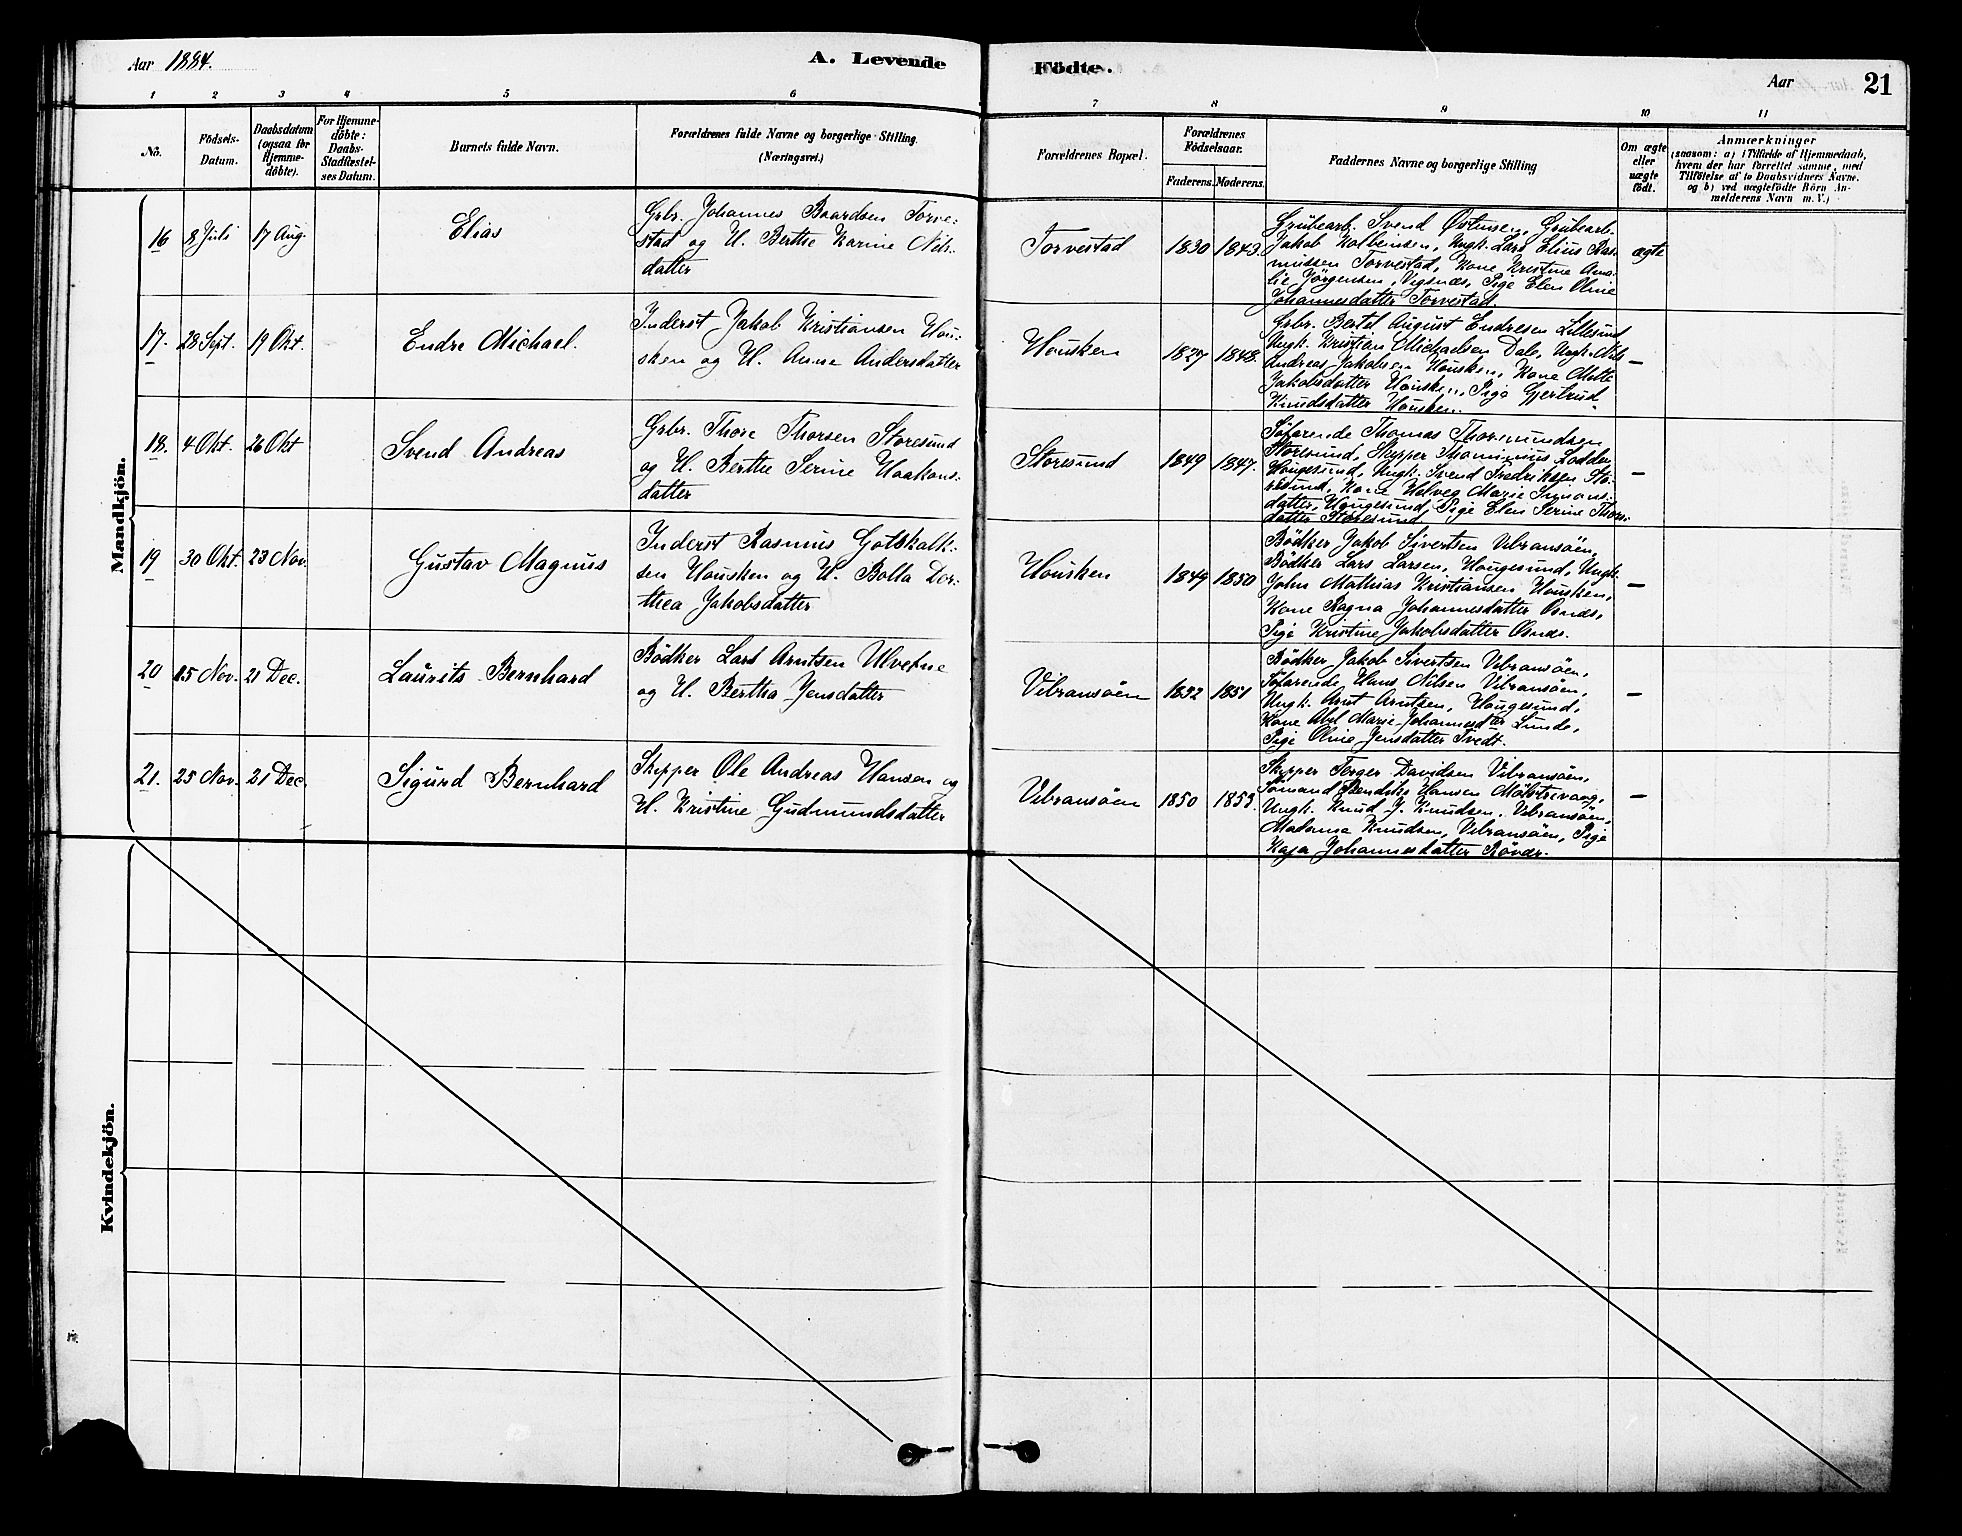 Aar 1884.
A. Levende Födte.
Aar
21
1 2 3 4 5 6 7 8 9 10 11
No.
Födsels-
Datum.
Daabsdatum
(ogsaa for
Hjemme-
döbte).
For Hjemme-
döbte:
Daabs-
Stadfæstel-
ses Datum.
Barnets fulde Navn.
Forældrenes fulde Navne og borgerlige Stilling.
(Næringsvei.)
Forældrenes Bopæl.
Forældrenes
Födselsaar.
Faderens. Moderens.
Faddernes Navne og borgerlige Stilling
Om ægte
eller
uægte
født.
Anmærkninger
(saasom: a) i Tilfælde af Hjemmedaab,
hvem der har forrettet samme, med
Tilföielse af to Daabsvidners Navne,
og b) ved uægtefödte Börn An-
melderens Navn m. V.)
Mandkjön.
16
8 Juli
17 Aug.
Elias
Grbr. Johannes Baardsen Torve-
stad og H. Berthe Karine Nils-
datter
Torvestad
1830 1843.
Grubearb. Svend Östensen, Grubearb.
Jakob Kolbeinsen, Ungk. Lars Elius Ras-
mussen Torvestad, Kone Kristine Ama-
lie Jörgensen, Vigsnæs, Pige Elen Oline
Johannesdatter Torvestad.
ægte
17.
28 Sept.
19 Okt.
Endre Michael.
Inderst Jakob Kristiansen Hou-
sken og H. Anne Andersdatter
Housken
1848.
Grbr. Bertel August Endresen Lillesund
Ungk. Kristien Michaelsen Dale, Ungk. Nils
Andreas Jakobsen Housken, Kone Mette
Jakobsdatter Housken, Pige Gjertrud
Knudsdatter Housken.
–
18.
4 Okt.
26 Okt
Svend Andreas
Grbr. Thore Thorsen Storesund
og H. Berthe Serine Haakons-
datter
Storesund
1849 1847.
Söfarende Thomas Thormundsen
Storesund, Skipper Thominius Lodden
Hougesund, Ungk. Svend Fredriksen Sto-
resund, Kone Helveg Marie Simons-
datter, Hougesund, Pige Elen Serine Thors-
datter Storesund
–
19
30 Okt.
23 Nov.
Gustav Magnus
Inderst Rasmus Gotskalk-
sen Housken og H. Bolla Dor-
thea Jakobsdatter
Housken
1849 1850
Bödker Jakob Sivertsen Vibransöen,
Bödker Lars Larsen, Hougesund, Ungk.
John Mathias Kristiansen Housken,
Kone Ragna Johannesdatter Osnes,
Pige Kristine Jakobsdatter Osnes.
–
20
15 Nov.
21 Dec.
Laurits Bernhard
Bödker Lars Arntsen Ulvetne
og H. Bertha Jensdatter
Vibransöen
1851
Bödker Jakob Sivertsen Vibransöen,
Söfarende Hans Nilsen Vibransöen,
Ungk. Arnt Arntsen, Hougesund,
Kone Abel Marie Johannesdtr Lunde,
Pige Oline Jensdatter Tvedt.
–
21.
25 Nov.
21 Dec.
Sigurd Bernhard
Skipper Ole Andreas Hansen og
H. Kristine Gudmundsdatter
Vibransöen
1850 1853.
Skipper Torger Davidsen Vibransöen,
Sömand Bendiks Hansen Mölstrevaag,
Ungk. Knud J. Knudsen, Vibransöen,
Madame Knudsen, Vibransöen, Pige
Kaja Johannesdatter Rövær.
–
Kvindekjön.